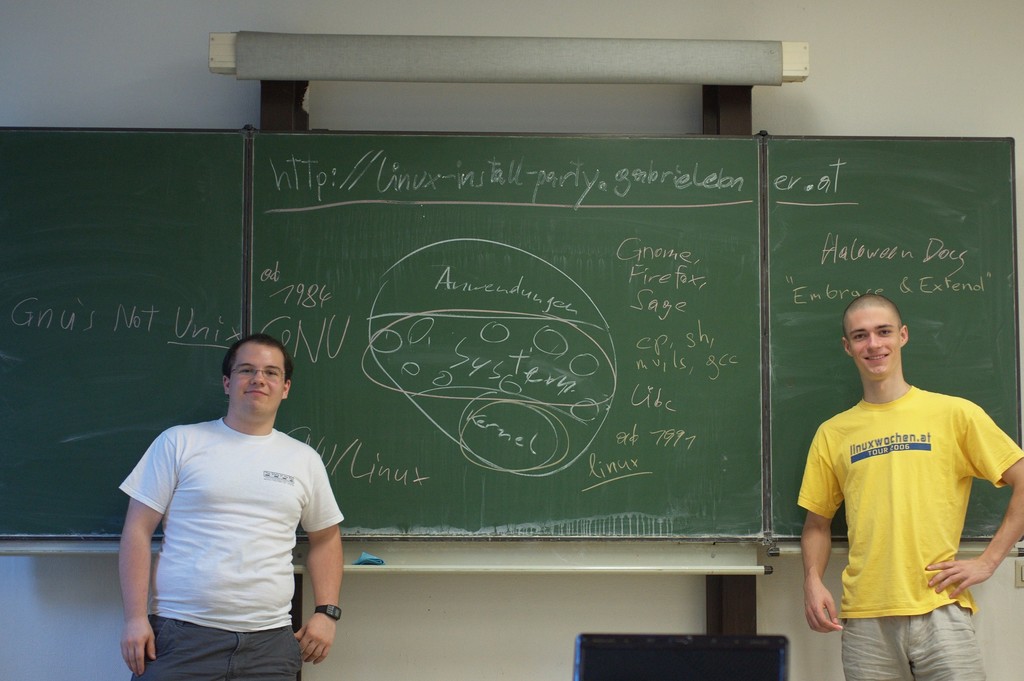 http://linux-install-party.gabrielebner.at
Gnu's Not Unix
ab
1984
GNU
GNU/Linux
Anwendungen
System
Kernel
Gnome,
Firefox,
Sage
cp, sh,
mv, ls, gcc
libc
ab 1991
linux
Haloween Docs
"Embrace & Extend"
linuxwochen.at
TOUR 2006